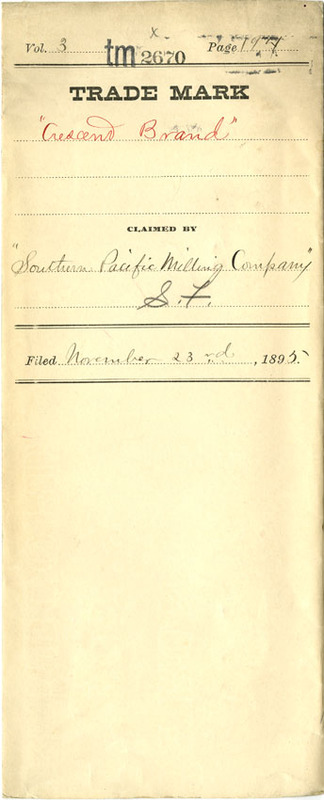 x
Vol. 3 tm 2670 Page
TRADE MARK
"Crescend Brand"
CLAIMED BY
"Southern Pacific Milling Company"
S. F.
Filed November 23rd, 1895.